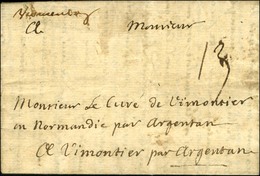 A Monsieur
13
Monsieur Le Curé de Vimontier
en Normandie par Argentan
A Vimontier par Argentan